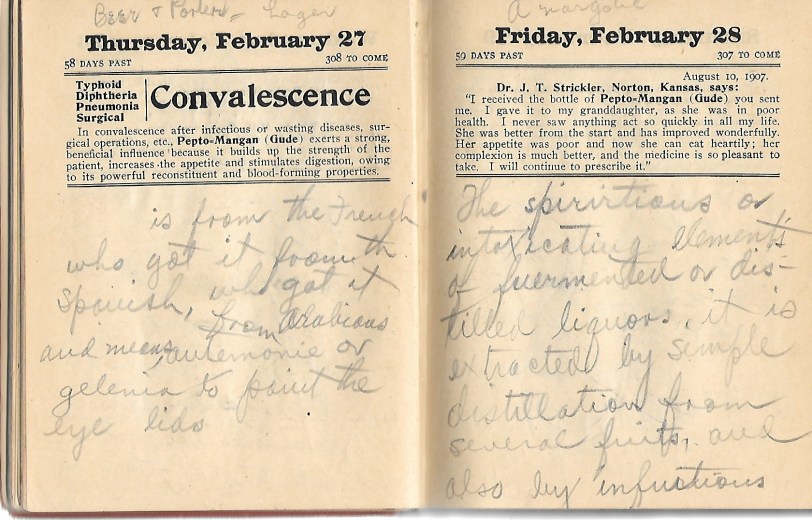 Beer & Porters = Lager
Thursday, February 27
58 DAYS PAST 308 TO COME
Typhoid
Diphtheria
Pneumonia
Surgical
Convalescence
In convalescence after infectious or wasting diseases, sur-
gical operations, etc., Pepto-Mangan (Gude) exerts a strong,
beneficial influence because it builds up the strength of the
patient, increases the appetite and stimulates digestion, owing
to its powerful reconstituent and blood-forming properties.
is from the French
who got it from th
Spanish, who got it
from Arabians
and means, antemonie or
gelenia to paint the
eye lids
Friday, February 28
59 DAYS PAST 307 TO COME
August 10, 1907.
Dr. J. T. Strickler, Norton, Kansas, says:
"I received the bottle of Pepto-Mangan (Gude) you sent
me. I gave it to my granddaughter, as she was in poor
health. I never saw anything act so quickly in all my life.
She was better from the start and has improved wonderfully.
Her appetite was poor and now she can eat heartily; her
complexion is much better, and the medicine is so pleasant to
take. I will continue to prescribe it."
The spirirtious or
intoxicating elements
of fuermented or dis-
tilled liquors, it is
extracted by simple
distillation from
several fruits, and
also by infustious